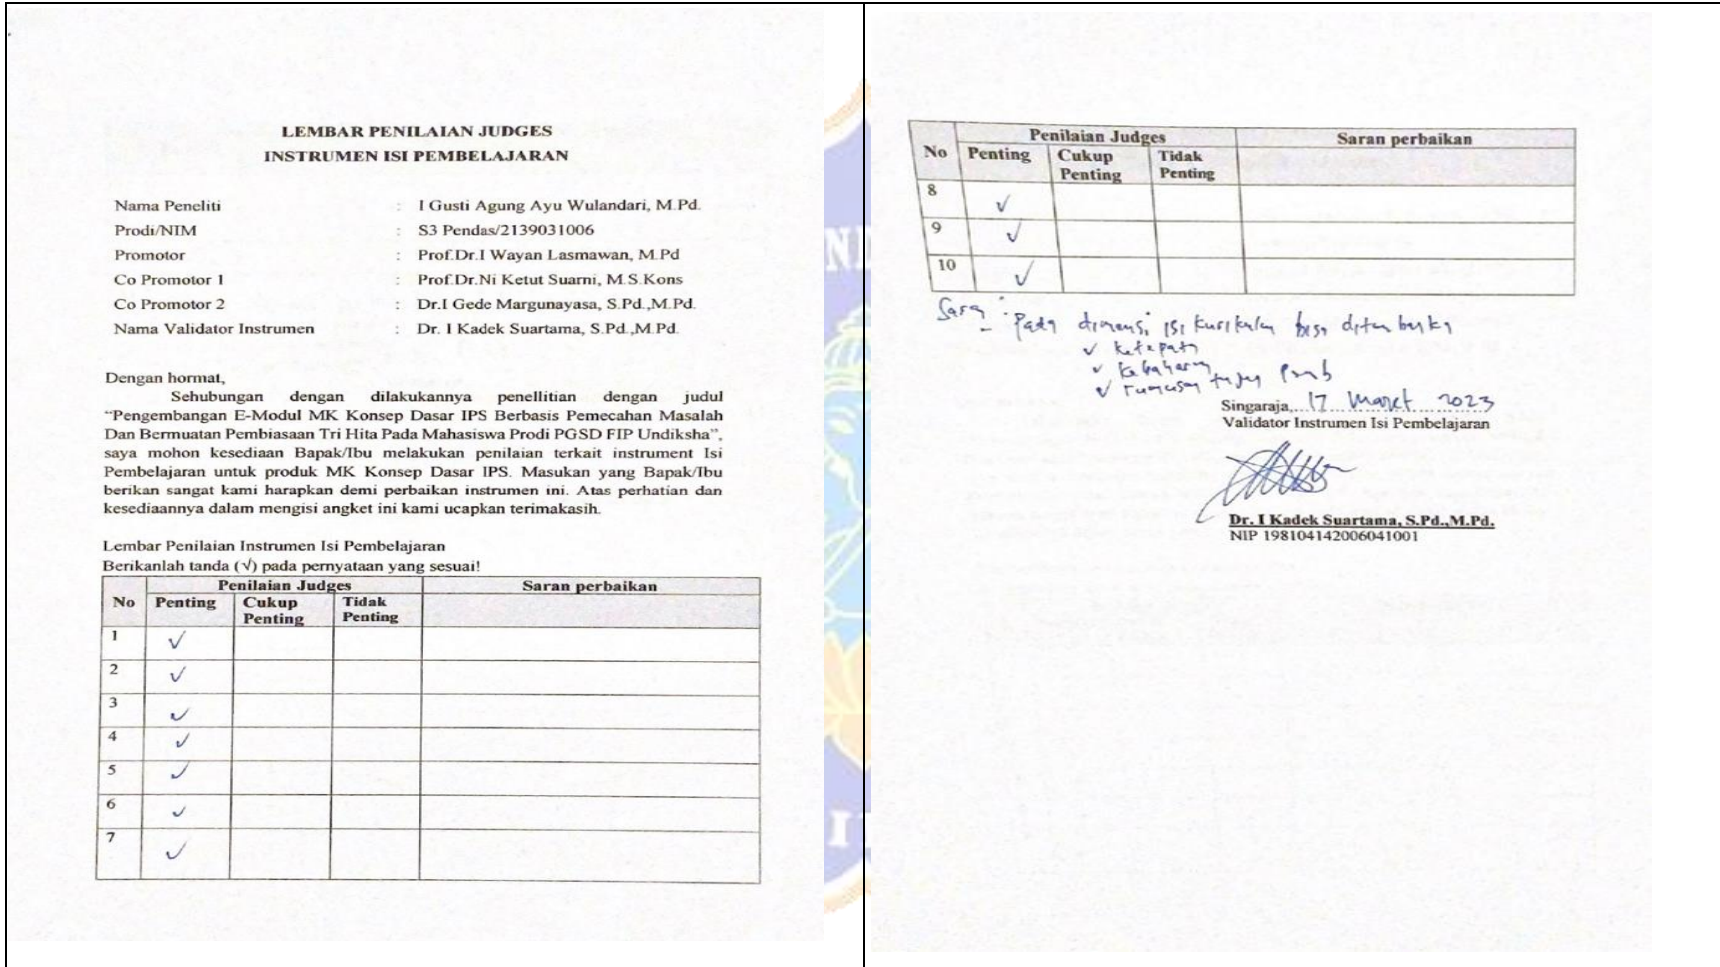 LEMBAR PENILAIAN JUDGES
INSTRUMEN ISI PEMBELAJARAN
Nama Peneliti : I Gusti Agung Ayu Wulandari, M.Pd.
Prodi/NIM : S3 Pendas/2139031006
Promotor : Prof.Dr.I Wayan Lasmawan, M.Pd
Co Promotor 1 : Prof.Dr.Ni Ketut Suarni, M.S.Kons
Co Promotor 2 : Dr.I Gede Margunayasa, S.Pd.,M.Pd.
Nama Validator Instrumen : Dr. I Kadek Suartama, S.Pd.,M.Pd.
Dengan hormat,
Sehubungan dengan dilakukannya penellitian dengan judul
“Pengembangan E-Modul MK Konsep Dasar IPS Berbasis Pemecahan Masalah
Dan Bermuatan Pembiasaan Tri Hita Pada Mahasiswa Prodi PGSD FIP Undiksha”,
saya mohon kesediaan Bapak/Ibu melakukan penilaian terkait instrument Isi
Pembelajaran untuk produk MK Konsep Dasar IPS. Masukan yang Bapak/Ibu
berikan sangat kami harapkan demi perbaikan instrumen ini. Atas perhatian dan
kesediaannya dalam mengisi angket ini kami ucapkan terimakasih.
Lembar Penilaian Instrumen Isi Pembelajaran
Berikanlah tanda (√) pada pernyataan yang sesuai!
Penilaian Judges Saran perbaikan
No Penting Cukup Penting Tidak Penting
1 ✓
2 ✓
3 ✓
4 ✓
5 ✓
6 ✓
7 ✓
Penilaian Judges Saran perbaikan
No Penting Cukup Penting Tidak Penting
8 ✓
9 ✓
10 ✓
Saran : Pada dimensi isi kurikulum bisa ditambahkan
✓ Ketepatan
✓ Kebaharuan
✓ Rumusan tujuan
Singaraja, 17 Maret 2023
Validator Instrumen Isi Pembelajaran
Dr. I Kadek Suartama, S.Pd.,M.Pd.
NIP 198104142006041001